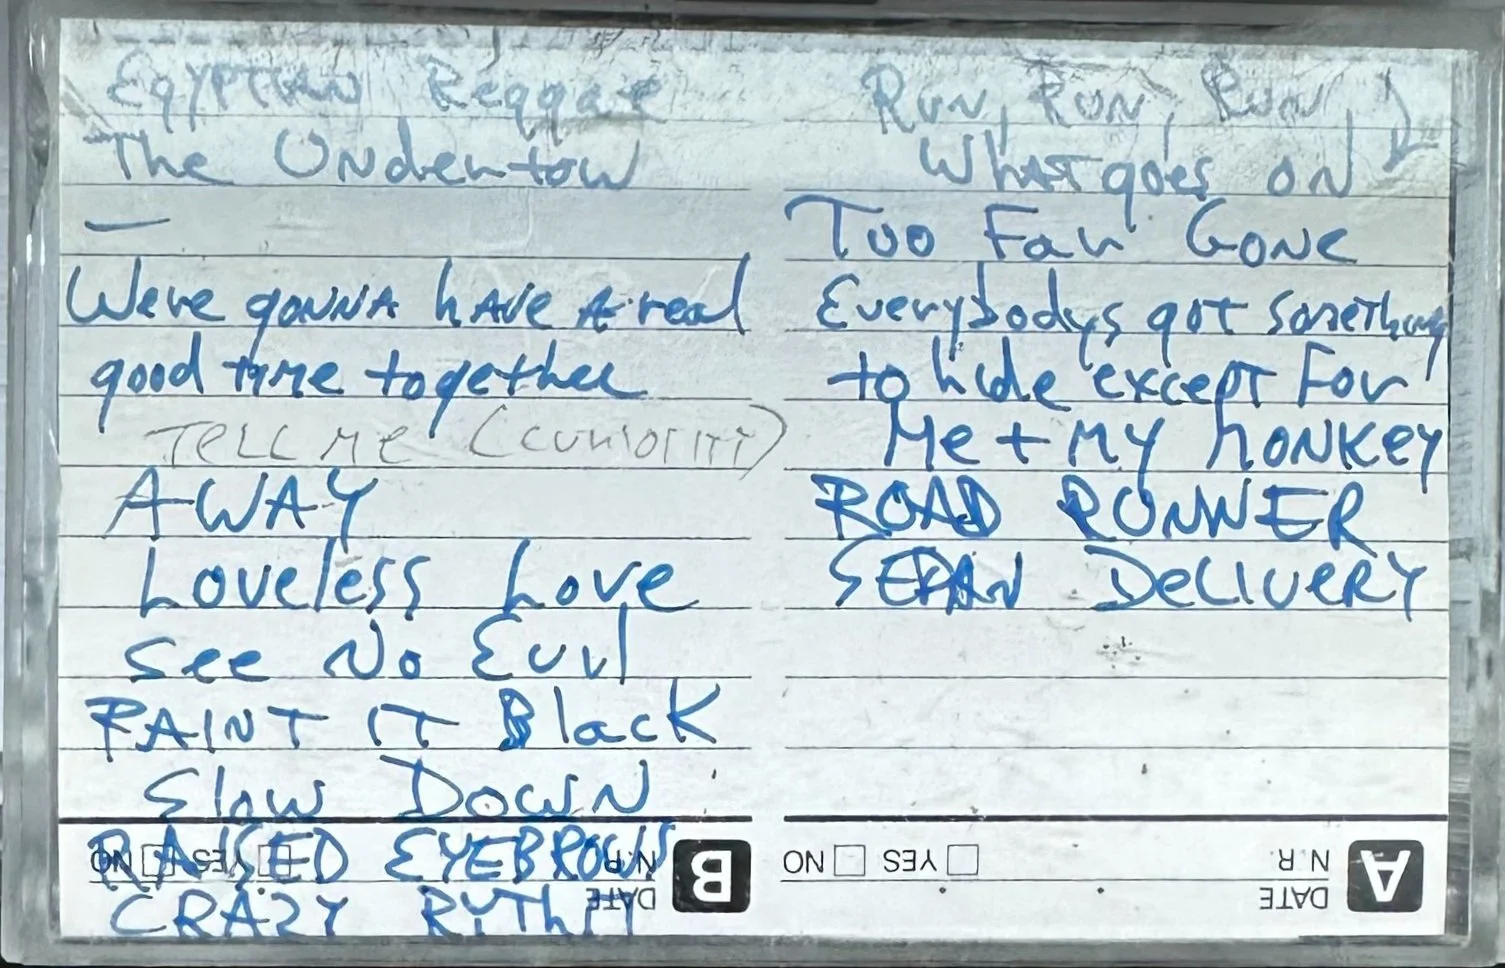 Egyptian Reggae
The Undertow
—
Were gonna have A real
good time together
Tell Me (curiosity)
AWAY
Loveless Love
See No Evil
PAINT IT Black
Slow Down
RAISED EYEBROWS
CRAZY RYTHM
YES NO
N.R.
DATE
B
Run, Run, Run,
What goes on
Too Far Gone
Everybodys got something
to hide except For
Me + My Monkey
ROAD RUNNER
SEDAN DeLIVERY
YES NO
N.R.
DATE
A